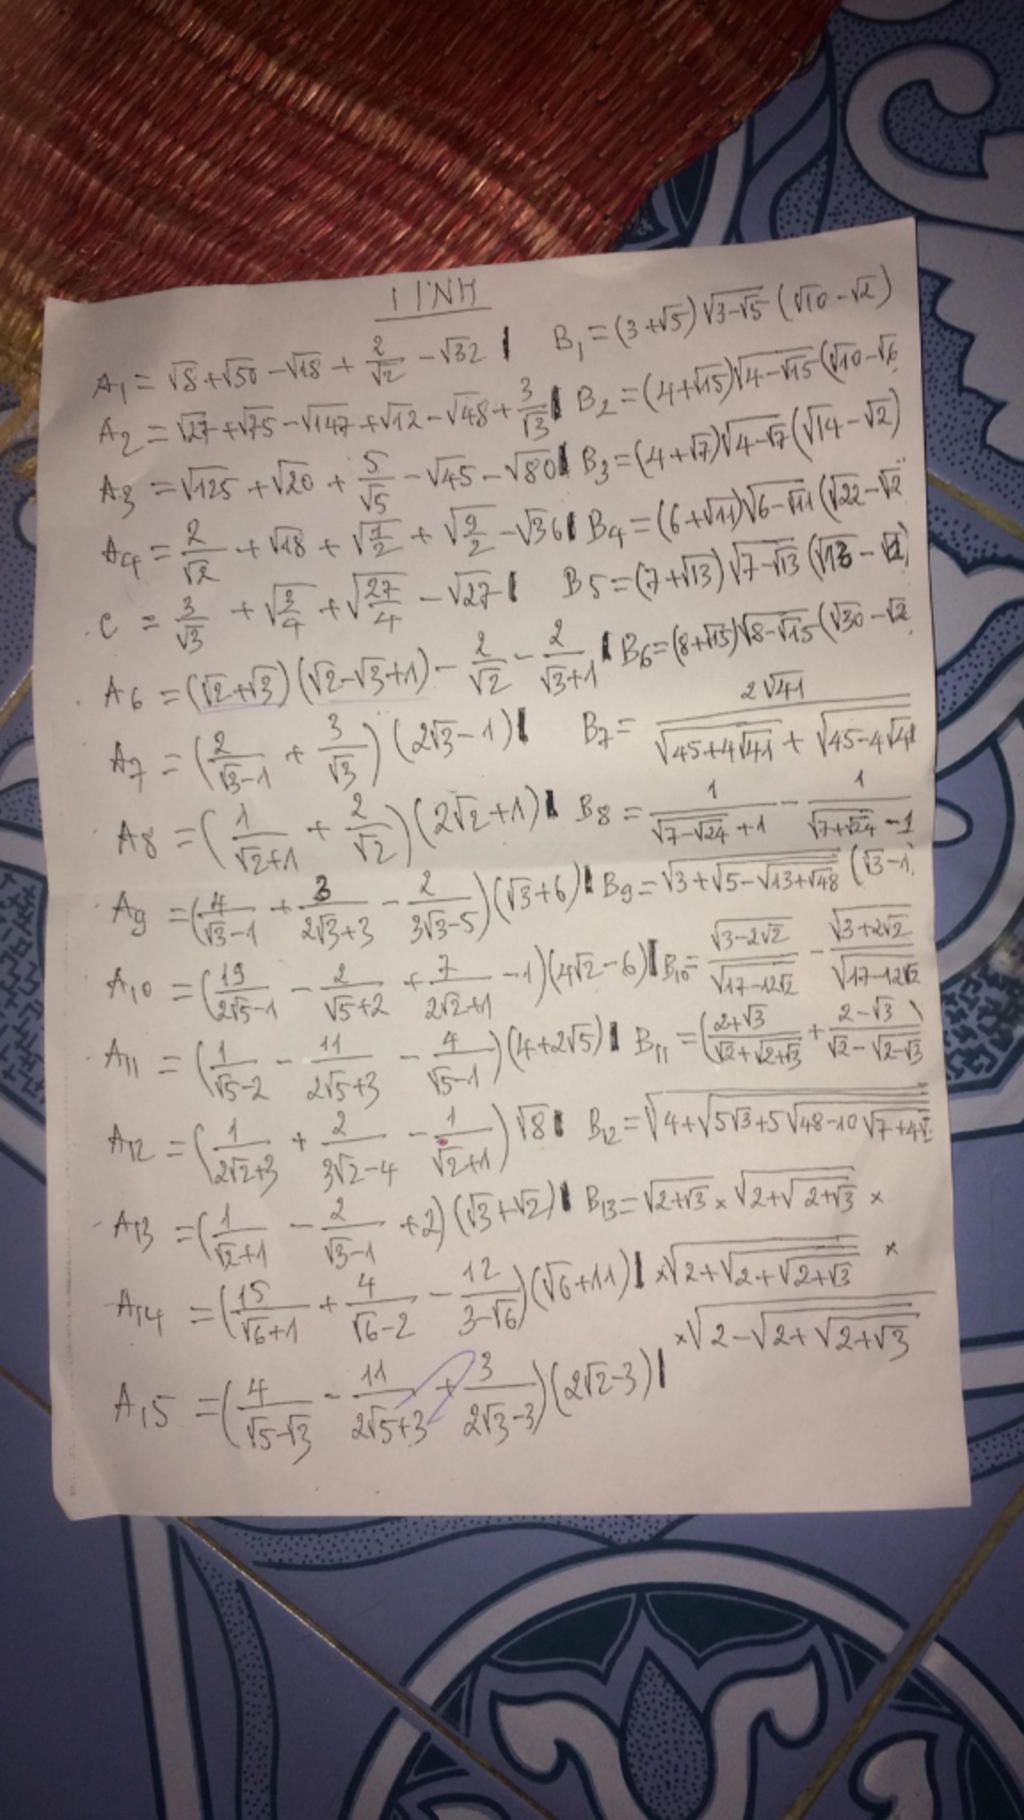 TÍNH
A₁ = √8 + √50 − √18 + 2/√2 − √32 | B₁ = (3+√5)√(3−√5) (√10 − √2)
A₂ = √27 + √75 − √147 + √12 − √48 + 3/√3 | B₂ = (4+√15)√(4−√15) (√10 − √6
A₃ = √125 + √20 + 5/√5 − √45 − √80 | B₃ = (4+√7)√(4−√7) (√14 − √2)
A₄ = 2/√2 + √18 + √(1/2) + √(9/2) − √36 | B₄ = (6+√11)√(6−√11) (√22 − √2
C = 3/√3 + √(3/4) + √(27/4) − √27 | B5 = (7+√13)√(7−√13) (√13 − √2)
A₆ = (√2+√3)(√2−√3+1) − 2/√2 − 2/(√3+1) | B₆ = (8+√15)√(8−√15) (√30 − √2
A₇ = (2/(√3−1) + 3/√3)(2√3−1) | B₇ = 2√41/(√(45+4√41) + √(45−4√41
A₈ = (1/(√2+1) + 2/√2)(2√2+1) | B₈ = 1/(√(7−√24) + 1) − 1/(√(7+√24) − 1
A₉ = (4/(√3−1) + 3/(2√3+3) − 2/(3√3−5))(√3+6) | B₉ = √(3+√(5−√(13+√48))) (√3−1)
A₁₀ = (19/(2√5−1) − 2/(√5+2) + 7/(2√2+1) − 1)(4√2−6) | B₁₀ = √(3−2√2)/√(17−12√2) − √(3+2√2)/√(17−12√2
A₁₁ = (1/(√5−2) − 11/(2√5+3) − 4/(√5−1))(4+2√5) | B₁₁ = ((2+√3)/(√2+√(2+√3)) + (2−√3)/(√2−√(2−√3))
A₁₂ = (1/(2√2+3) + 2/(3√2−4) − 1/(√2+1)) √8 | B₁₂ = √(4+√(5√3+5√(48−10√(7+4√
A₁₃ = (1/(√2+1) − 2/(√3−1) + 2)(√3+√2) | B₁₃ = √(2+√3) × √(2+√(2+√3)) ×
A₁₄ = (15/(√6+1) + 4/(√6−2) − 12/(3−√6))(√6+11) | ×√(2+√(2+√(2+√3))) ×
×√(2−√(2+√(2+√3)))
A₁5 = (4/(√5−√3) − 11/(2√5+3) + 3/(2√3−3))(2√2−3) |